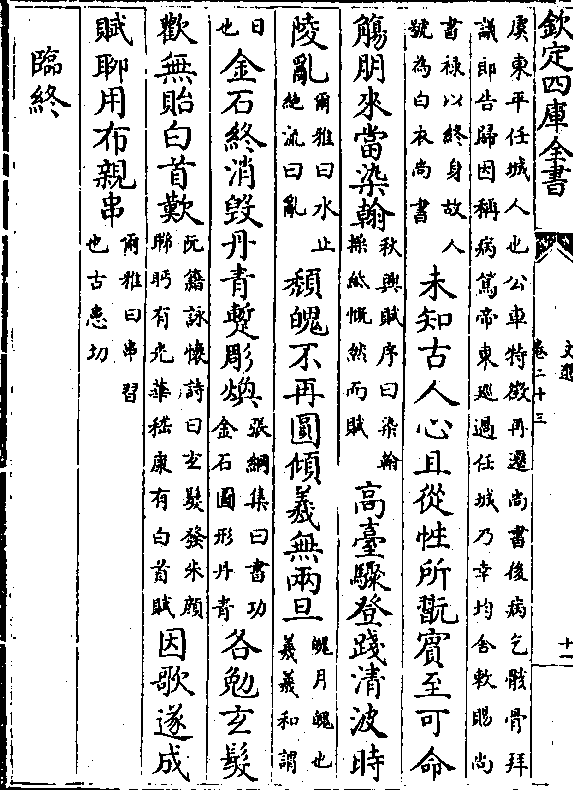 欽定四庫全書
文選
卷二十三
十一
虞東平任城人也公車特徵再遷尚書後病乞骸骨拜
議郎告歸因稱病篤帝東巡過任城乃幸均舍軟賜尚
書祿以終身故人
號為白衣尚書
未知古人心且從性所翫賓至可命
觴朋來當染翰
秋興賦序曰染翰
操紙慨然而賦
高臺驟登踐清波時
陵亂
爾雅曰水止
絶流曰亂
頽魄不再圓傾羲無兩旦
魄月魄也
羲羲和謂
日
也
金石終消毀丹青暫彫煥
張綱集曰書功
金石圖形丹青
各勉玄髮
歡無貽白首歎
阮籍詠懷詩曰玄髮發朱顔
睇眄有光華嵇康有白首賦
因歌遂成
賦聊用布親串
爾雅曰串習
也古患切
臨終